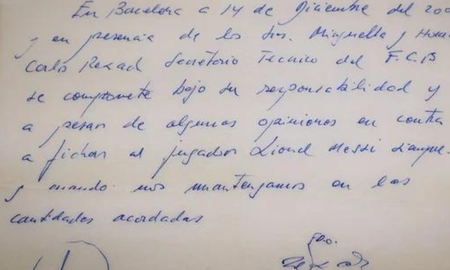 En Barcelona a 14 de Diciembre del 200
y en presencia de los Srs. Minguella y Hora
Carlos Rexach Secretario Técnico del F.C.B
se compromete bajo su responsabilidad y
a pesar de algunas opiniones en contra
a fichar al jugador Lionel Messi siempre
y cuando nos mantengamos en las
cantidades acordadas
Fdo.